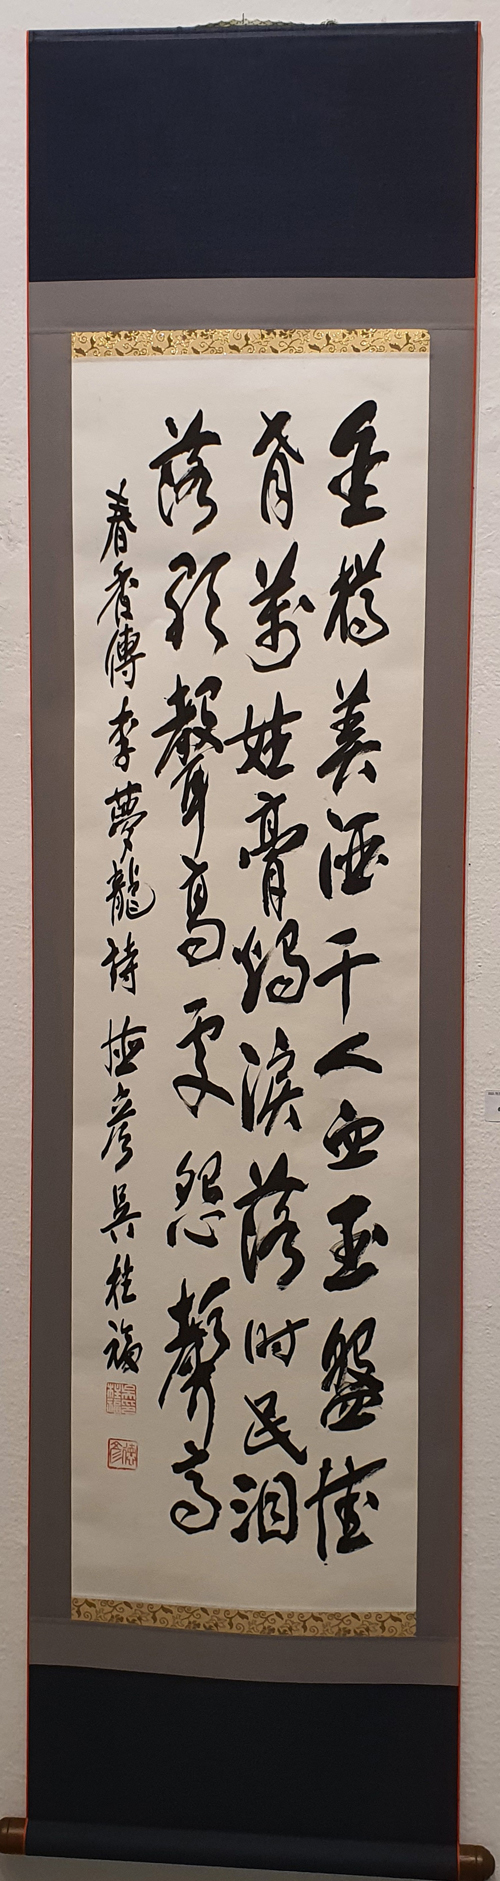 金樽美酒千人血玉盤佳
肴萬姓膏燭淚落时民泪
落歌聲高處怨聲高
春香傳李夢龍詩 德彦吳桂福